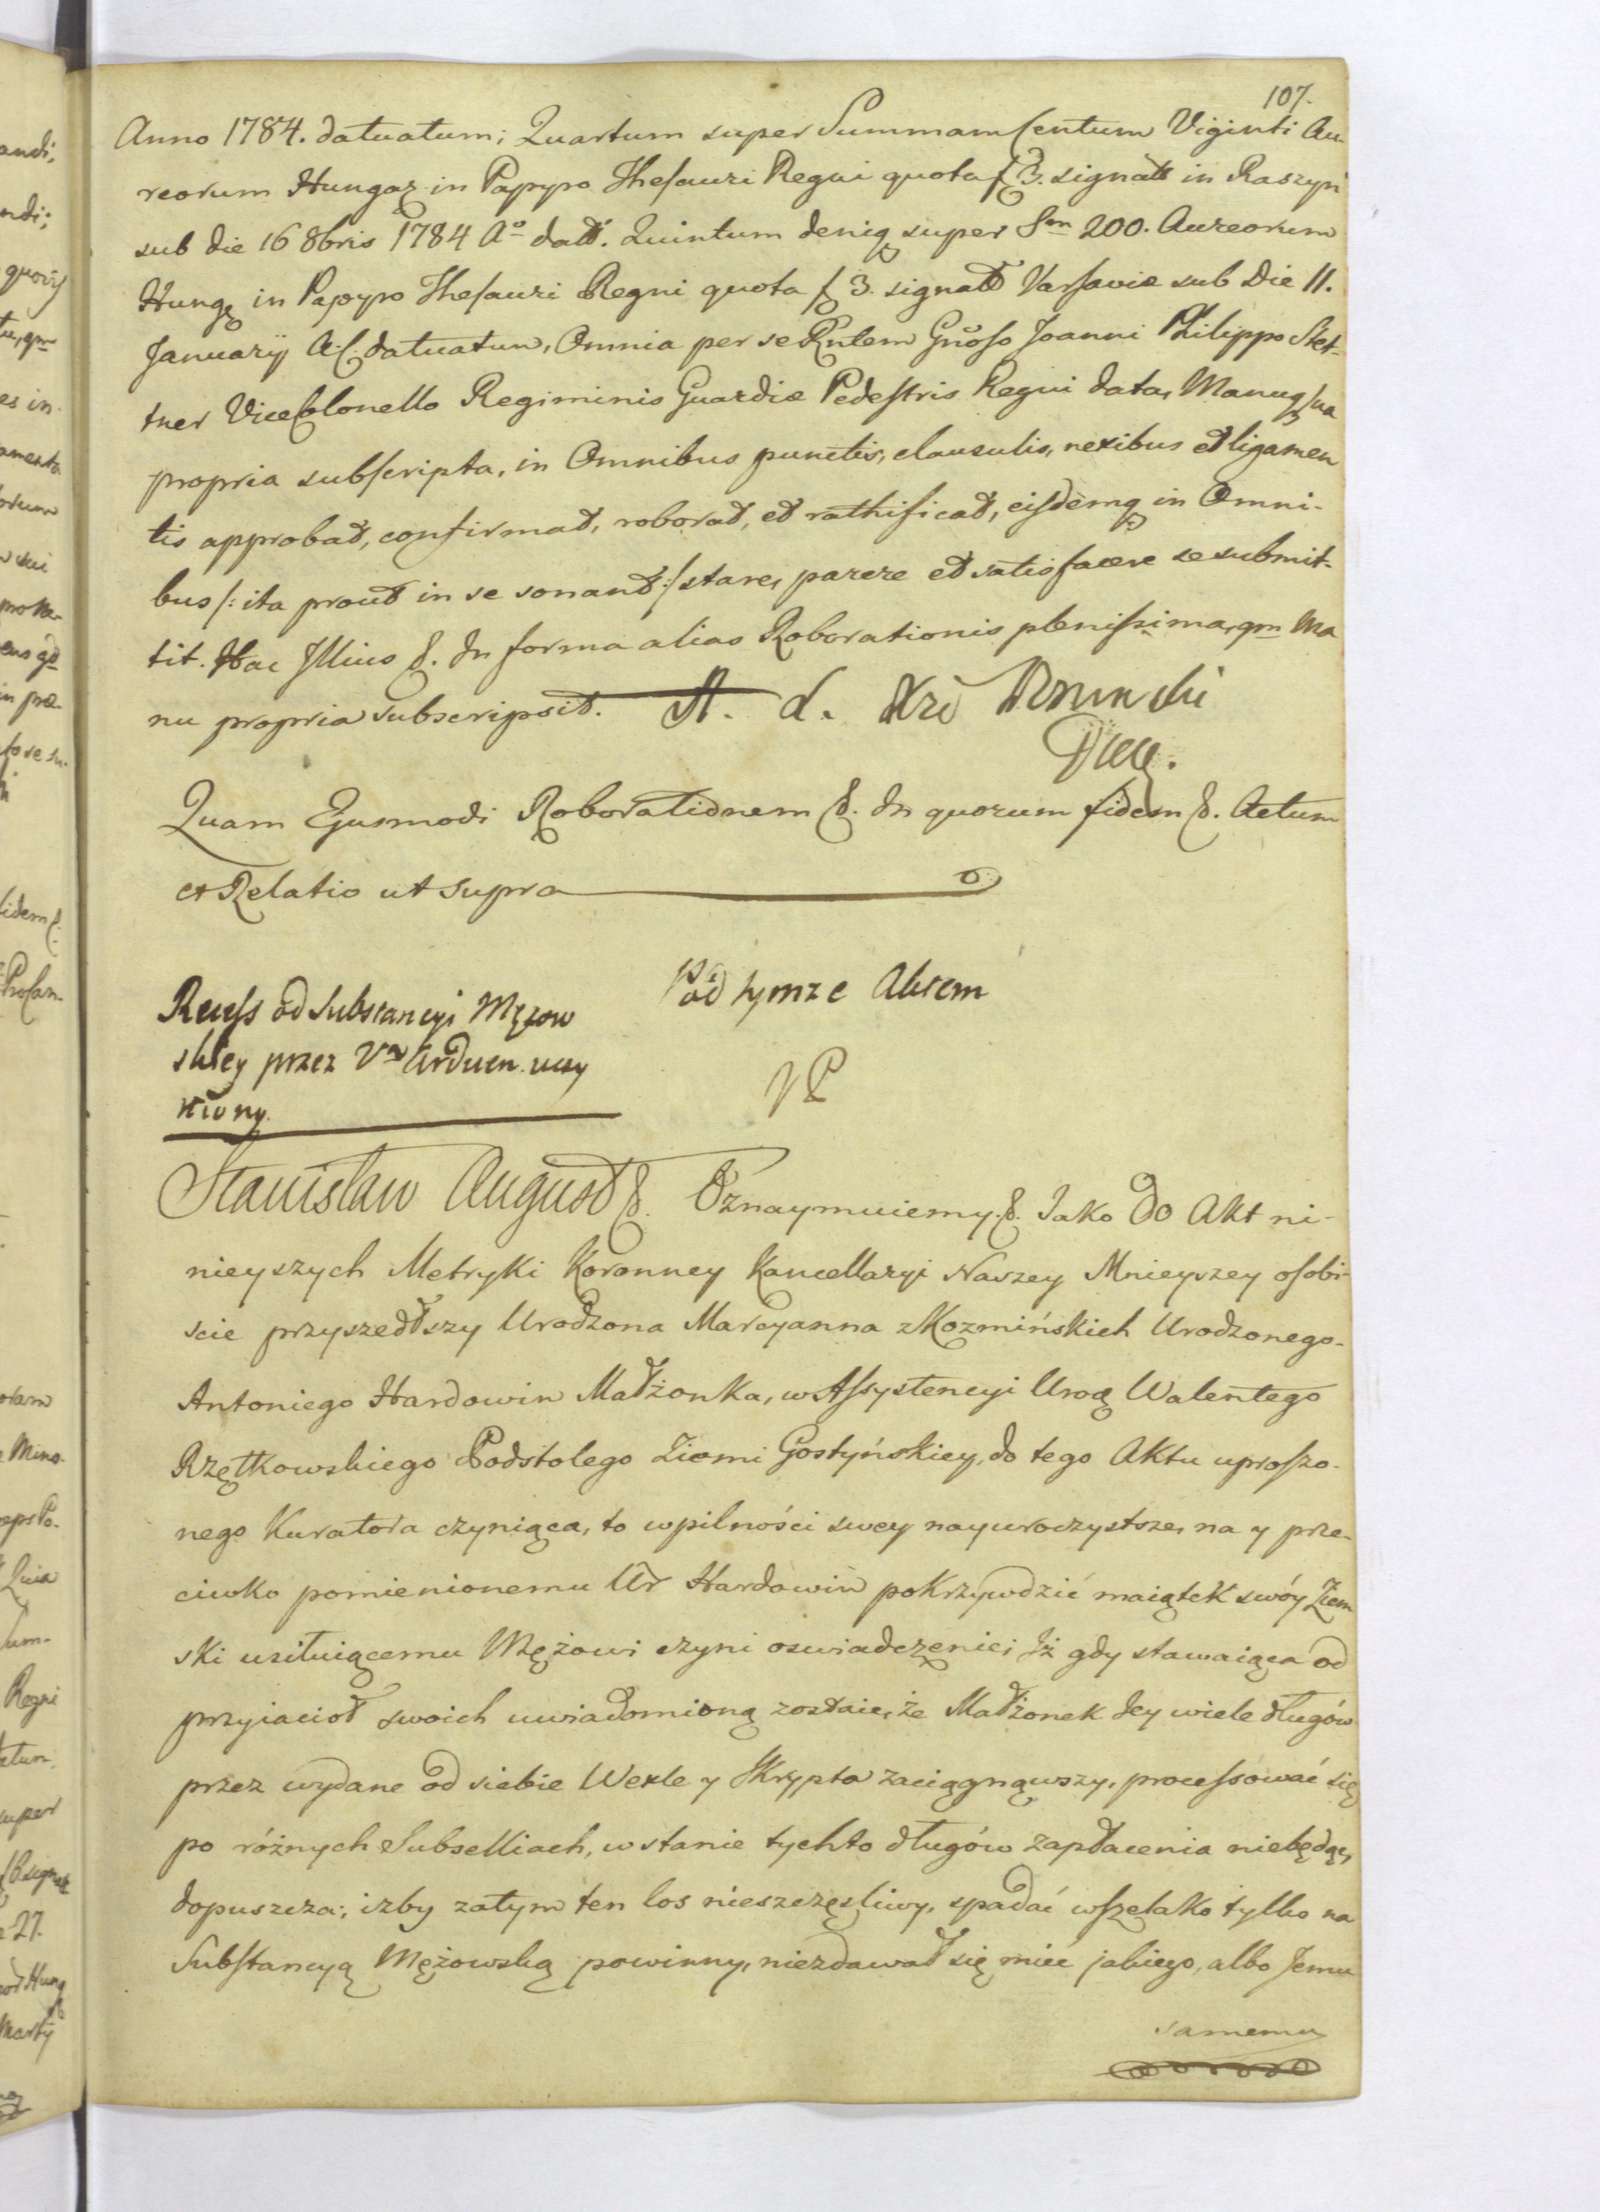 107.
Anno 1784. datuatum; Quartum super Summam Centum Viginti Au-
reorum Hungaz in Papyro Thesauri Regni quota f 3. signatt in Raszyn
sub die 16 8bris 1784 Aº datt. Quintum deniq super Sm 200. Aureorum
Hung in Papyro Thesauri Regni quota f 3. signatt Varsaviæ sub Die 11.
January A. C. datuatum, Omnia per se Rntem Gnoso Joanni Philippo Stet-
tner ViceColonello Regiminis Guardiæ Pedestris Regni data, Manuq sua
propria subscripta, in Omnibus punctis, clausulis, nexibus et ligamen
tis approbat, confirmat, roborat, et rathificat, eisdemq in Omni-
bus /: ita prout in se sonant :/ stare, parere et satisfacere se submit-
tit. Hac Illius &. In forma alias Roborationis plenissima, qm Ma
nu propria subscripsit. A. d.
Quam Ejusmodi Roborationem &. In quorum fidem &. Actum
et Relatio ut supra
Recess od Substancyi Mężow
skiey przez Vn Arduen. uczy
niony.
Pod tymze Aktem
VP
Stanisław August &. Oznaymuiemy. &. Jako Do Akt ni-
nieyszych Metryki Koronney Kancellaryi Naszey Mnieyszey osobi-
scie przyszedłszy Urodzona Marcyanna z Kozmińskich Urodzonego
Antoniego Hardowin Małżonka, w Assystencyi Urog Walentego
Rzętkowskiego Podstolego Ziemi Gostyńskiey, do tego Aktu uproszo-
nego Kuratora czyniąca, to w pilności swey nayuroczystsze, na y prze-
ciwko pomienionemu Ur Hardowin pokrzywdzić maiątek swóy Ziem
ski usiłuiącemu Mężowi czyni oswiadczęnie; Iż gdy stawaiąca od
przyiacioł swoich uwiadomioną zostaie, że Małżonek Jey wiele długów
przez wydane od siebie Wexle y Skrypta zaciągnąwszy, processować się
po różnych Subselliach, w stanie tychto długów zapłacenia niebędąc,
dopuszcza; izby zatym ten los nieszczęsliwy, spadać wszelako tylko na
Substancyą Mężowską powinny, niezdawał się miec jakiego, albo Jemu
samemu